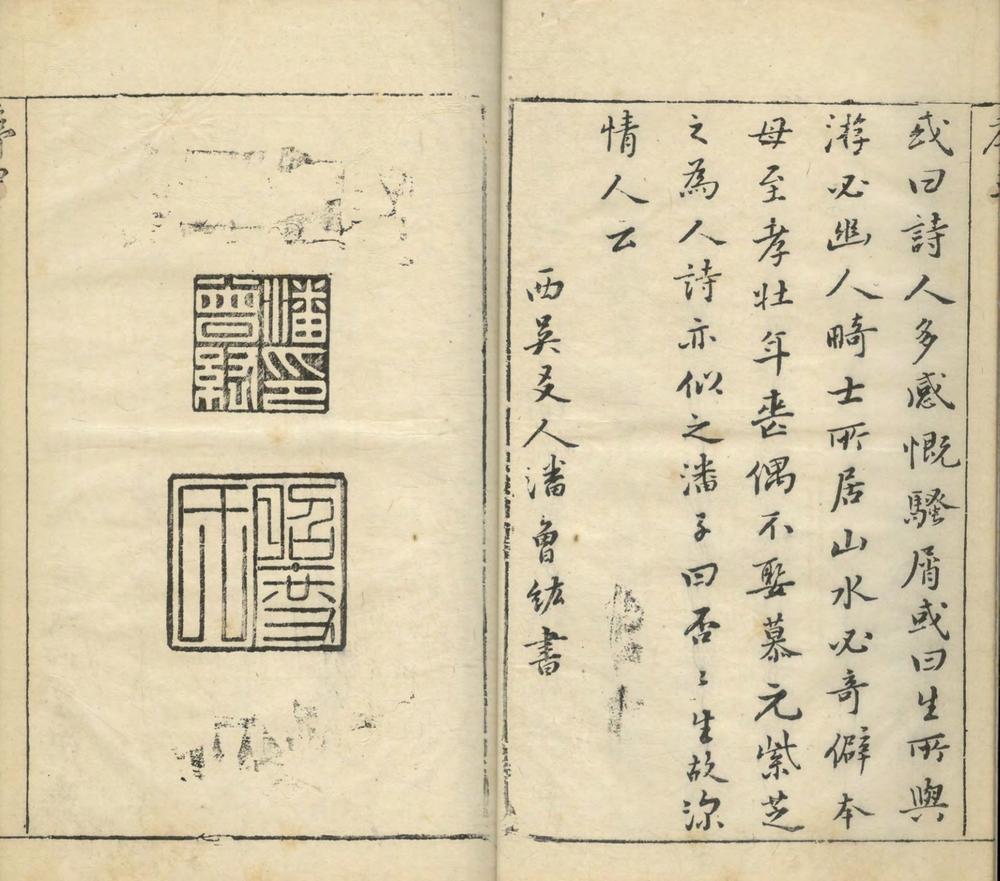 或曰詩人多感慨騷屑或曰生所與
游必幽人畸士所居山水必奇僻本
母至孝壯年喪偶不娶慕元紫芝
之為人詩亦似之潘子曰否〻生故深
情人云
西吳友人潘曾紘書
潘印曾紘